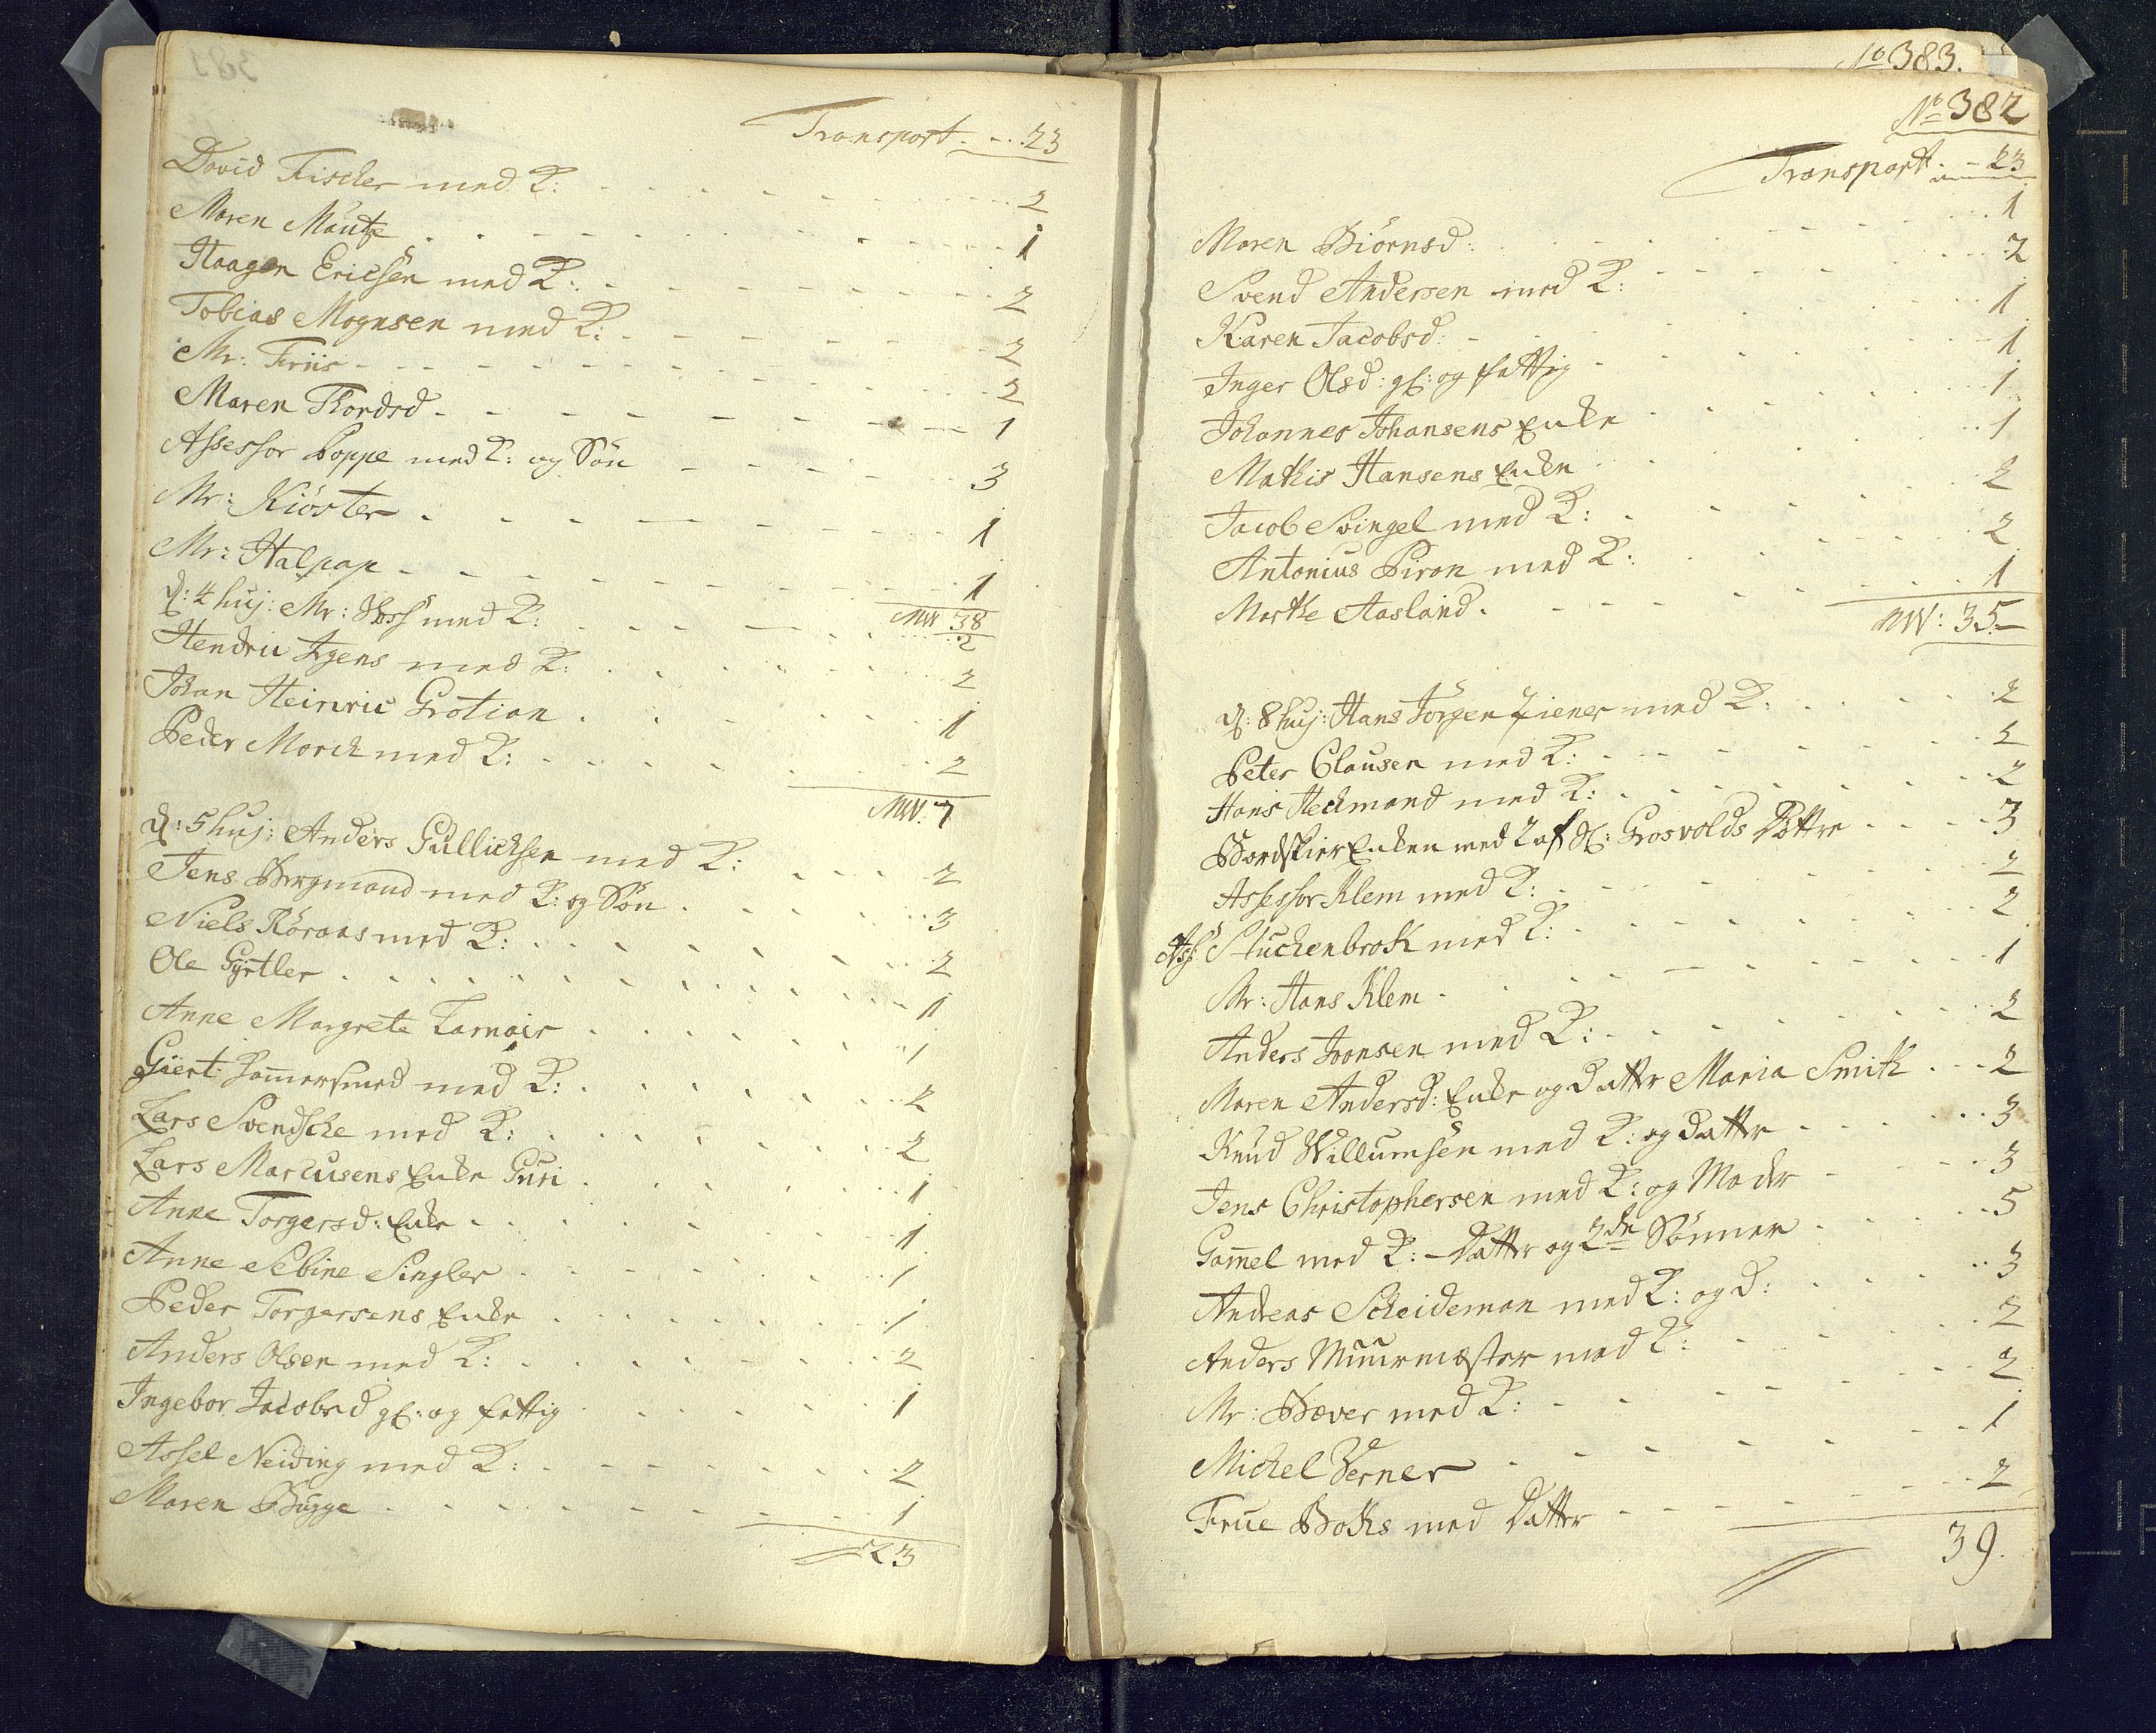 Transport . - . . 23
David Fischer med K: . . . . 2
Maren Mäutze . . . . 1
Haagen Ericsen med K: . . . . 2
Tobias Mognsen med K: . . . . 2
Mr: Friis . . . . 2
Maren Thordsd . . . . 1
Assessor Poppe med K: og Sön . . . . 3
Mr: Kiöster . . . . 1
Mr: Halpap . . . . 1
NW 38
d: 4 huj: Mr: Voss med K: . . . . 2
Hendric Irgens med K: . . . . 2
Johan Heinric Grotian . . . . 1
Peder Morck med K: . . . . 2
NW: 7
d: 5 huj: Anders Gullichsen med K: . . . . 2
Jens Bergmand med K: og Sön . . . . 3
Niels Röraas med K: . . . . 2
Ole Gjörtler . . . . 1
Anne Margrete Larnair . . . . 1
Giert Hamersmed med K: . . . . 2
Lars Svendsche med K: . . . . 2
Lars Marcusens Enke Guri . . . . 1
Anne Torgersd: Enke . . . . 1
Anne Sebine Singler . . . . 1
Peder Torgersens Enke . . . . 1
Anders Olsen med K: . . . . 2
Ingebor Jacobsd gl: og fattig . . . . 1
Assel Neiding med K: . . . . 2
Maren Bugge . . . . 1
23
No 383.
No 382
Transport . - 23
Maren Biörnsd: . . . . 1
Svend Andersen med K: . . . . 2
Karen Jacobsd: . . . . 1
Inger Olsd: gl: og fattig . . . . 1
Johannes Johansens Enke . . . . 1
Mathis Hansens Enke . . . . 1
Jacob Svingel med K: . . . . 2
Antonius Piron med K: . . . . 2
Marthe Aasland . . . . 1
NW: 35 -
d: 8 huj: Hans Jörgen Ziener med K: . . . . 2
Peter Clausen med K: . . . . 2
Hans Heckmand med K: . . . . 2
Bordskier Enken med 2 af Sl: Grosvolds Döttre . . . . 3
Assessor Klem med K: . . . . 2
Ass: Stuckenbrok med K: . . . . 2
Mr: Hans Klem . . . . 1
Anders Joonsen med K: . . . . 2
Maren Andersd: Enke og Datter Maria Smith . . . 2
Knud Willumsen med K: og Datter . . . . 3
Jens Christophersen med K: og Moder . . . . 3
Gamel med K: - Datter og 2de Sönner . . . . 5
Andreas Scheideman med K: og D: . . . . 3
Anders Muurmester med K: . . . . 2
Mr: Bæver med K: . . . . 2
Michel Verner . . . . 1
Frue Boths med Datter . . . . 2
39.